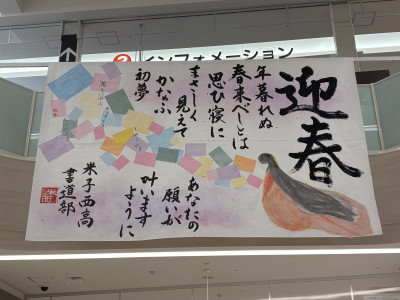 インフォメーション
迎春
年暮れぬ
春来べしとは
思ひ寝に
まさしく見えて
かなふ
初夢
あなたの
願いが
叶います
ように
米子西高
書道部